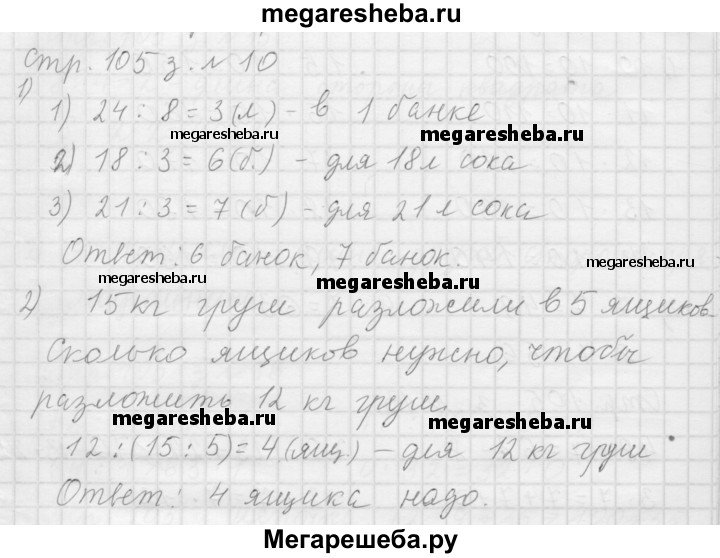 megaresheba.ru
Стр. 105 з. № 10
1)
1) 24 : 8 = 3 (л) - в 1 банке
megaresheba.ru megaresheba.ru
2) 18 : 3 = 6 (б.) - для 18 л сока
3) 21 : 3 = 7 (б) - для 21 л сока
Ответ: 6 банок, 7 банок.
megaresheba.ru megaresheba.ru megaresheba.ru
2) 15 кг груш разложили в 5 ящиков.
Сколько ящиков нужно, чтобы
разложить 12 кг груш.
megaresheba.ru megaresheba.ru
12 : (15 : 5) = 4 (ящ.) - для 12 кг груш
Ответ: 4 ящика надо.
Мегарешеба.ру